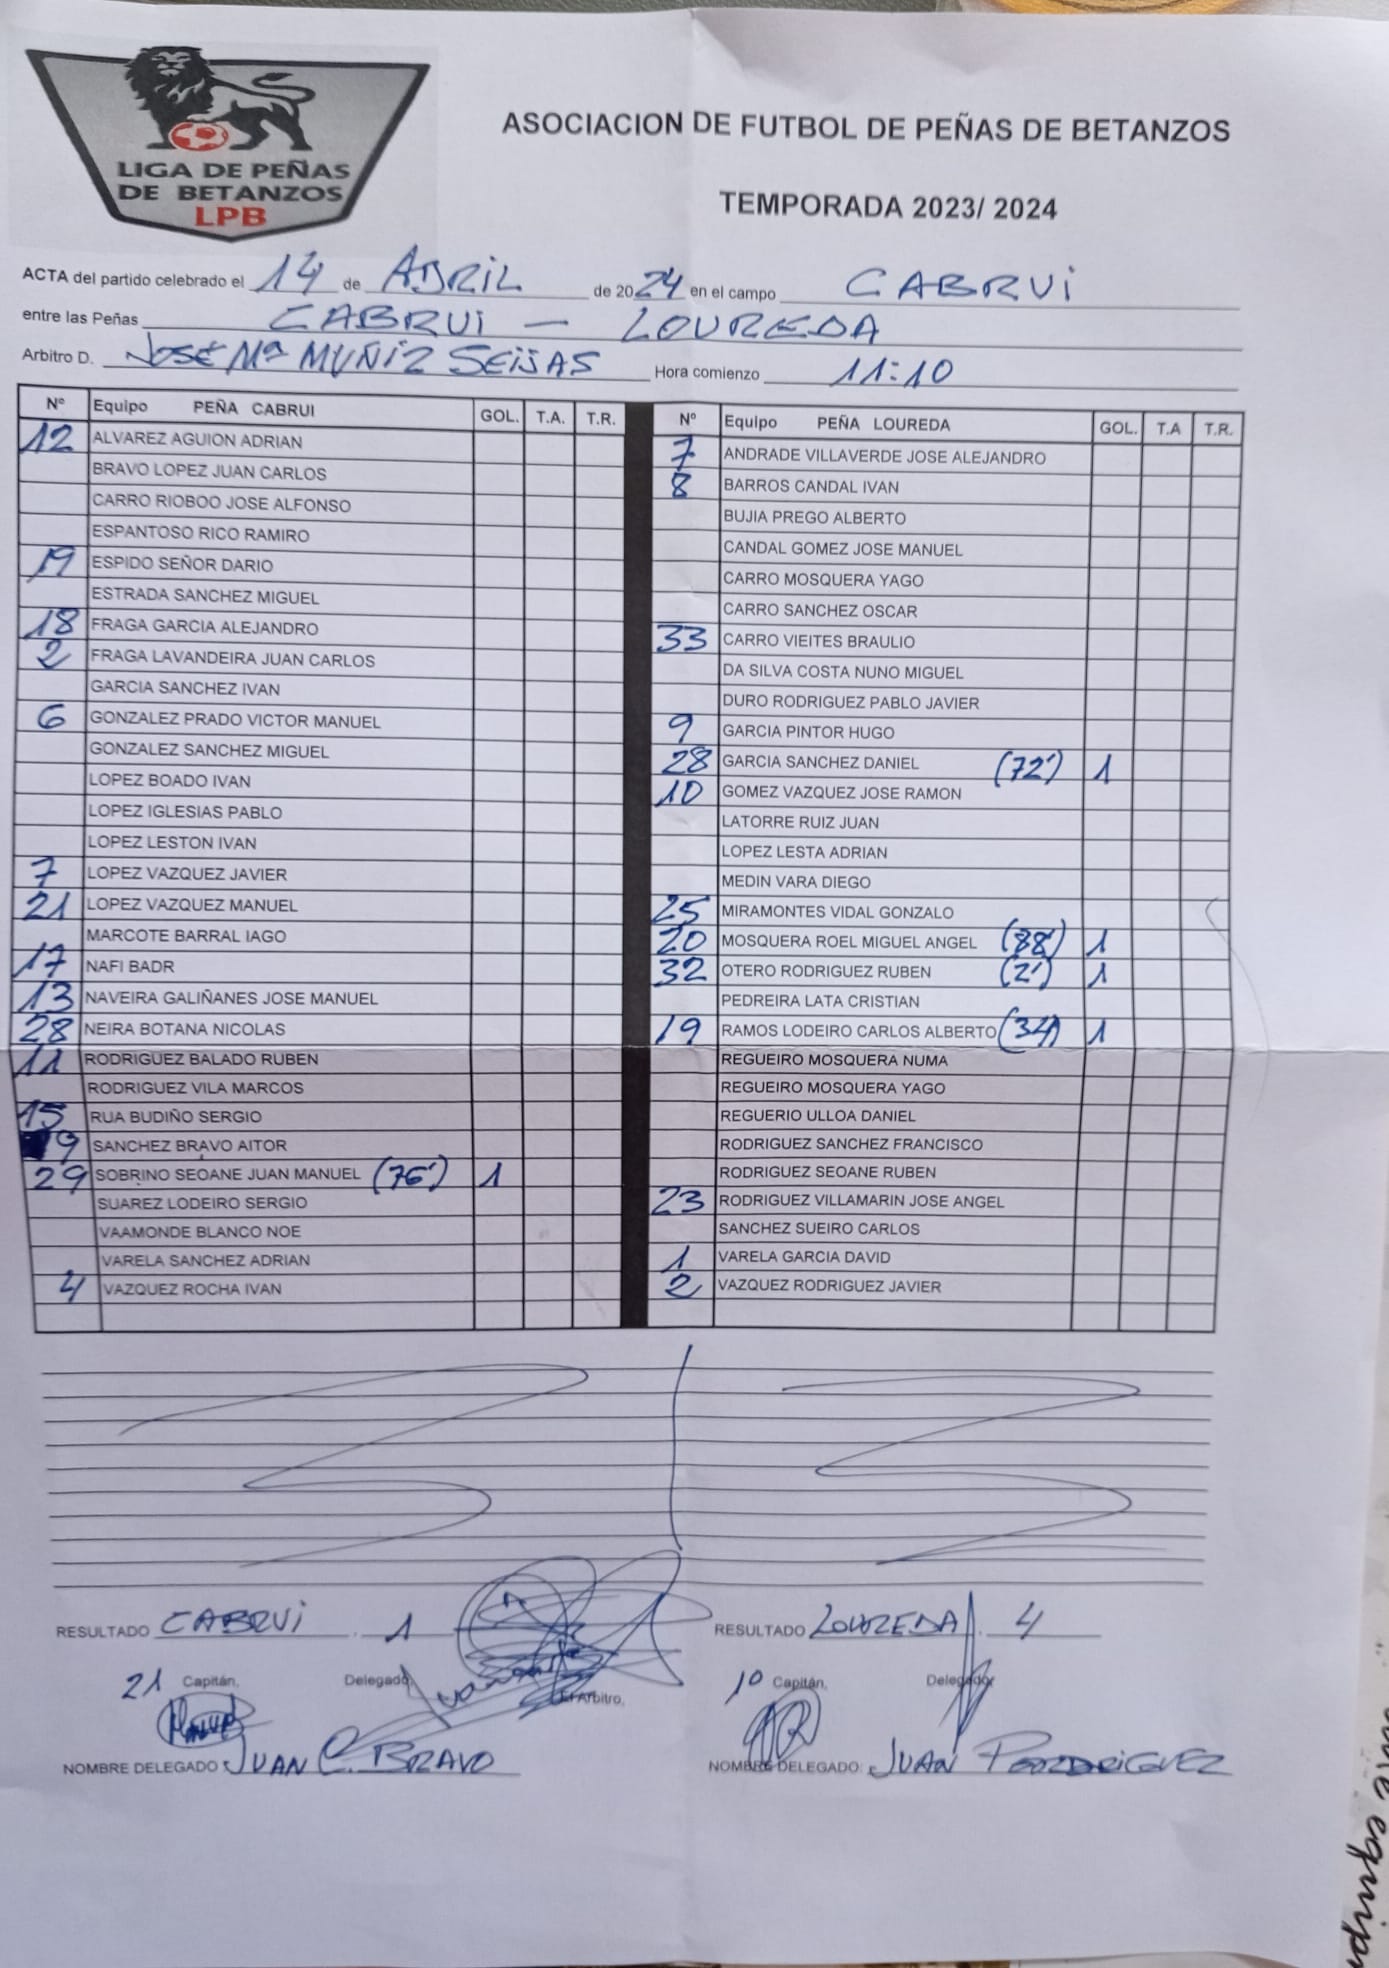 LIGA DE PEÑAS
DE BETANZOS
LPB
ASOCIACION DE FUTBOL DE PEÑAS DE BETANZOS
TEMPORADA 2023/ 2024
ACTA del partido celebrado el 14 de ABRIL de 2024 en el campo CABRUI
entre las Peñas CABRUI - LOUREDA
Arbitro D. JOSÉ Mª MUÑIZ SEIJAS Hora comienzo 11:10
Nº Equipo PEÑA CABRUI GOL. T.A. T.R.
12 ALVAREZ AGUION ADRIAN
BRAVO LOPEZ JUAN CARLOS
CARRO RIOBOO JOSE ALFONSO
ESPANTOSO RICO RAMIRO
19 ESPIDO SEÑOR DARIO
ESTRADA SANCHEZ MIGUEL
18 FRAGA GARCIA ALEJANDRO
2 FRAGA LAVANDEIRA JUAN CARLOS
GARCIA SANCHEZ IVAN
6 GONZALEZ PRADO VICTOR MANUEL
GONZALEZ SANCHEZ MIGUEL
LOPEZ BOADO IVAN
LOPEZ IGLESIAS PABLO
LOPEZ LESTON IVAN
7 LOPEZ VAZQUEZ JAVIER
21 LOPEZ VAZQUEZ MANUEL
MARCOTE BARRAL IAGO
17 NAFI BADR
13 NAVEIRA GALIÑANES JOSE MANUEL
28 NEIRA BOTANA NICOLAS
11 RODRIGUEZ BALADO RUBEN
RODRIGUEZ VILA MARCOS
15 RUA BUDIÑO SERGIO
9 SANCHEZ BRAVO AITOR
29 SOBRINO SEOANE JUAN MANUEL (76') 1
SUAREZ LODEIRO SERGIO
VAAMONDE BLANCO NOE
VARELA SANCHEZ ADRIAN
4 VAZQUEZ ROCHA IVAN
Nº Equipo PEÑA LOUREDA GOL. T.A T.R.
7 ANDRADE VILLAVERDE JOSE ALEJANDRO
8 BARROS CANDAL IVAN
BUJIA PREGO ALBERTO
CANDAL GOMEZ JOSE MANUEL
CARRO MOSQUERA YAGO
CARRO SANCHEZ OSCAR
33 CARRO VIEITES BRAULIO
DA SILVA COSTA NUNO MIGUEL
DURO RODRIGUEZ PABLO JAVIER
9 GARCIA PINTOR HUGO
28 GARCIA SANCHEZ DANIEL (72') 1
10 GOMEZ VAZQUEZ JOSE RAMON
LATORRE RUIZ JUAN
LOPEZ LESTA ADRIAN
MEDIN VARA DIEGO
25 MIRAMONTES VIDAL GONZALO
20 MOSQUERA ROEL MIGUEL ANGEL (88') 1
32 OTERO RODRIGUEZ RUBEN (2') 1
PEDREIRA LATA CRISTIAN
19 RAMOS LODEIRO CARLOS ALBERTO (34') 1
REGUEIRO MOSQUERA NUMA
REGUEIRO MOSQUERA YAGO
REGUERIO ULLOA DANIEL
RODRIGUEZ SANCHEZ FRANCISCO
RODRIGUEZ SEOANE RUBEN
23 RODRIGUEZ VILLAMARIN JOSE ANGEL
SANCHEZ SUEIRO CARLOS
1 VARELA GARCIA DAVID
2 VAZQUEZ RODRIGUEZ JAVIER
RESULTADO CABRUI 1 RESULTADO LOUREDA 4
21 Capitán, Delegado, El Arbitro, 10 Capitán, Delegado,
NOMBRE DELEGADO: JUAN C. BRAVO NOMBRE DELEGADO: JUAN RODRIGUEZ